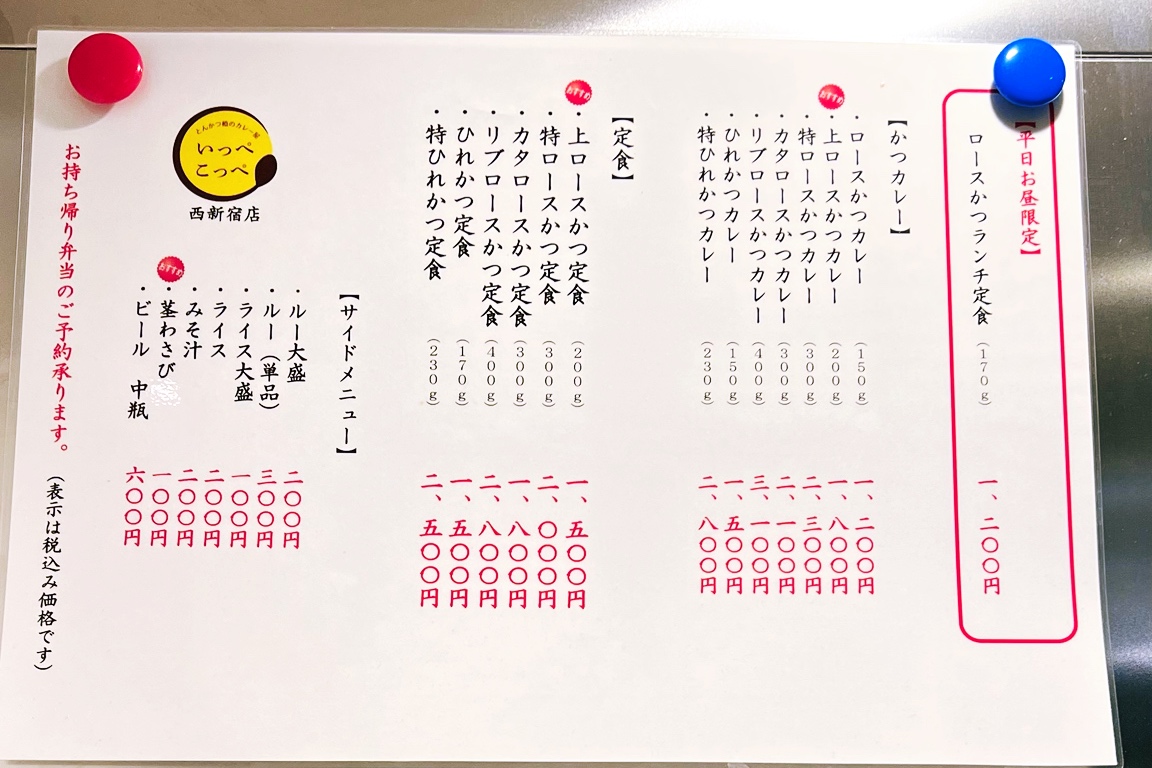 【平日お昼限定】
ロースかつランチ定食（170ｇ） 一、二〇〇円
【かつカレー】
・ロースかつカレー（150ｇ） 一、二〇〇円
おすすめ
・上ロースかつカレー（200ｇ） 一、八〇〇円
・特ロースかつカレー（300ｇ） 二、三〇〇円
・カタロースかつカレー（300ｇ） 二、一〇〇円
・リブロースかつカレー（400ｇ） 三、一〇〇円
・ひれかつカレー（150ｇ） 一、五〇〇円
・特ひれかつカレー（230ｇ） 二、八〇〇円
【定食】
おすすめ
・上ロースかつ定食（200ｇ） 一、五〇〇円
・特ロースかつ定食（300ｇ） 二、〇〇〇円
・カタロースかつ定食（300ｇ） 一、八〇〇円
・リブロースかつ定食（400ｇ） 二、八〇〇円
・ひれかつ定食（170ｇ） 一、五〇〇円
・特ひれかつ定食（230ｇ） 二、五〇〇円
【サイドメニュー】
・ルー大盛 二〇〇円
・ルー（単品） 三〇〇円
・ライス大盛 一〇〇円
・ライス 二〇〇円
・みそ汁 二〇〇円
おすすめ
・茎わさび 一〇〇円
・ビール 中瓶 六〇〇円
とんかつ檍のカレー屋
いっぺ
こっぺ
西新宿店
お持ち帰り弁当のご予約承ります。
（表示は税込み価格です）